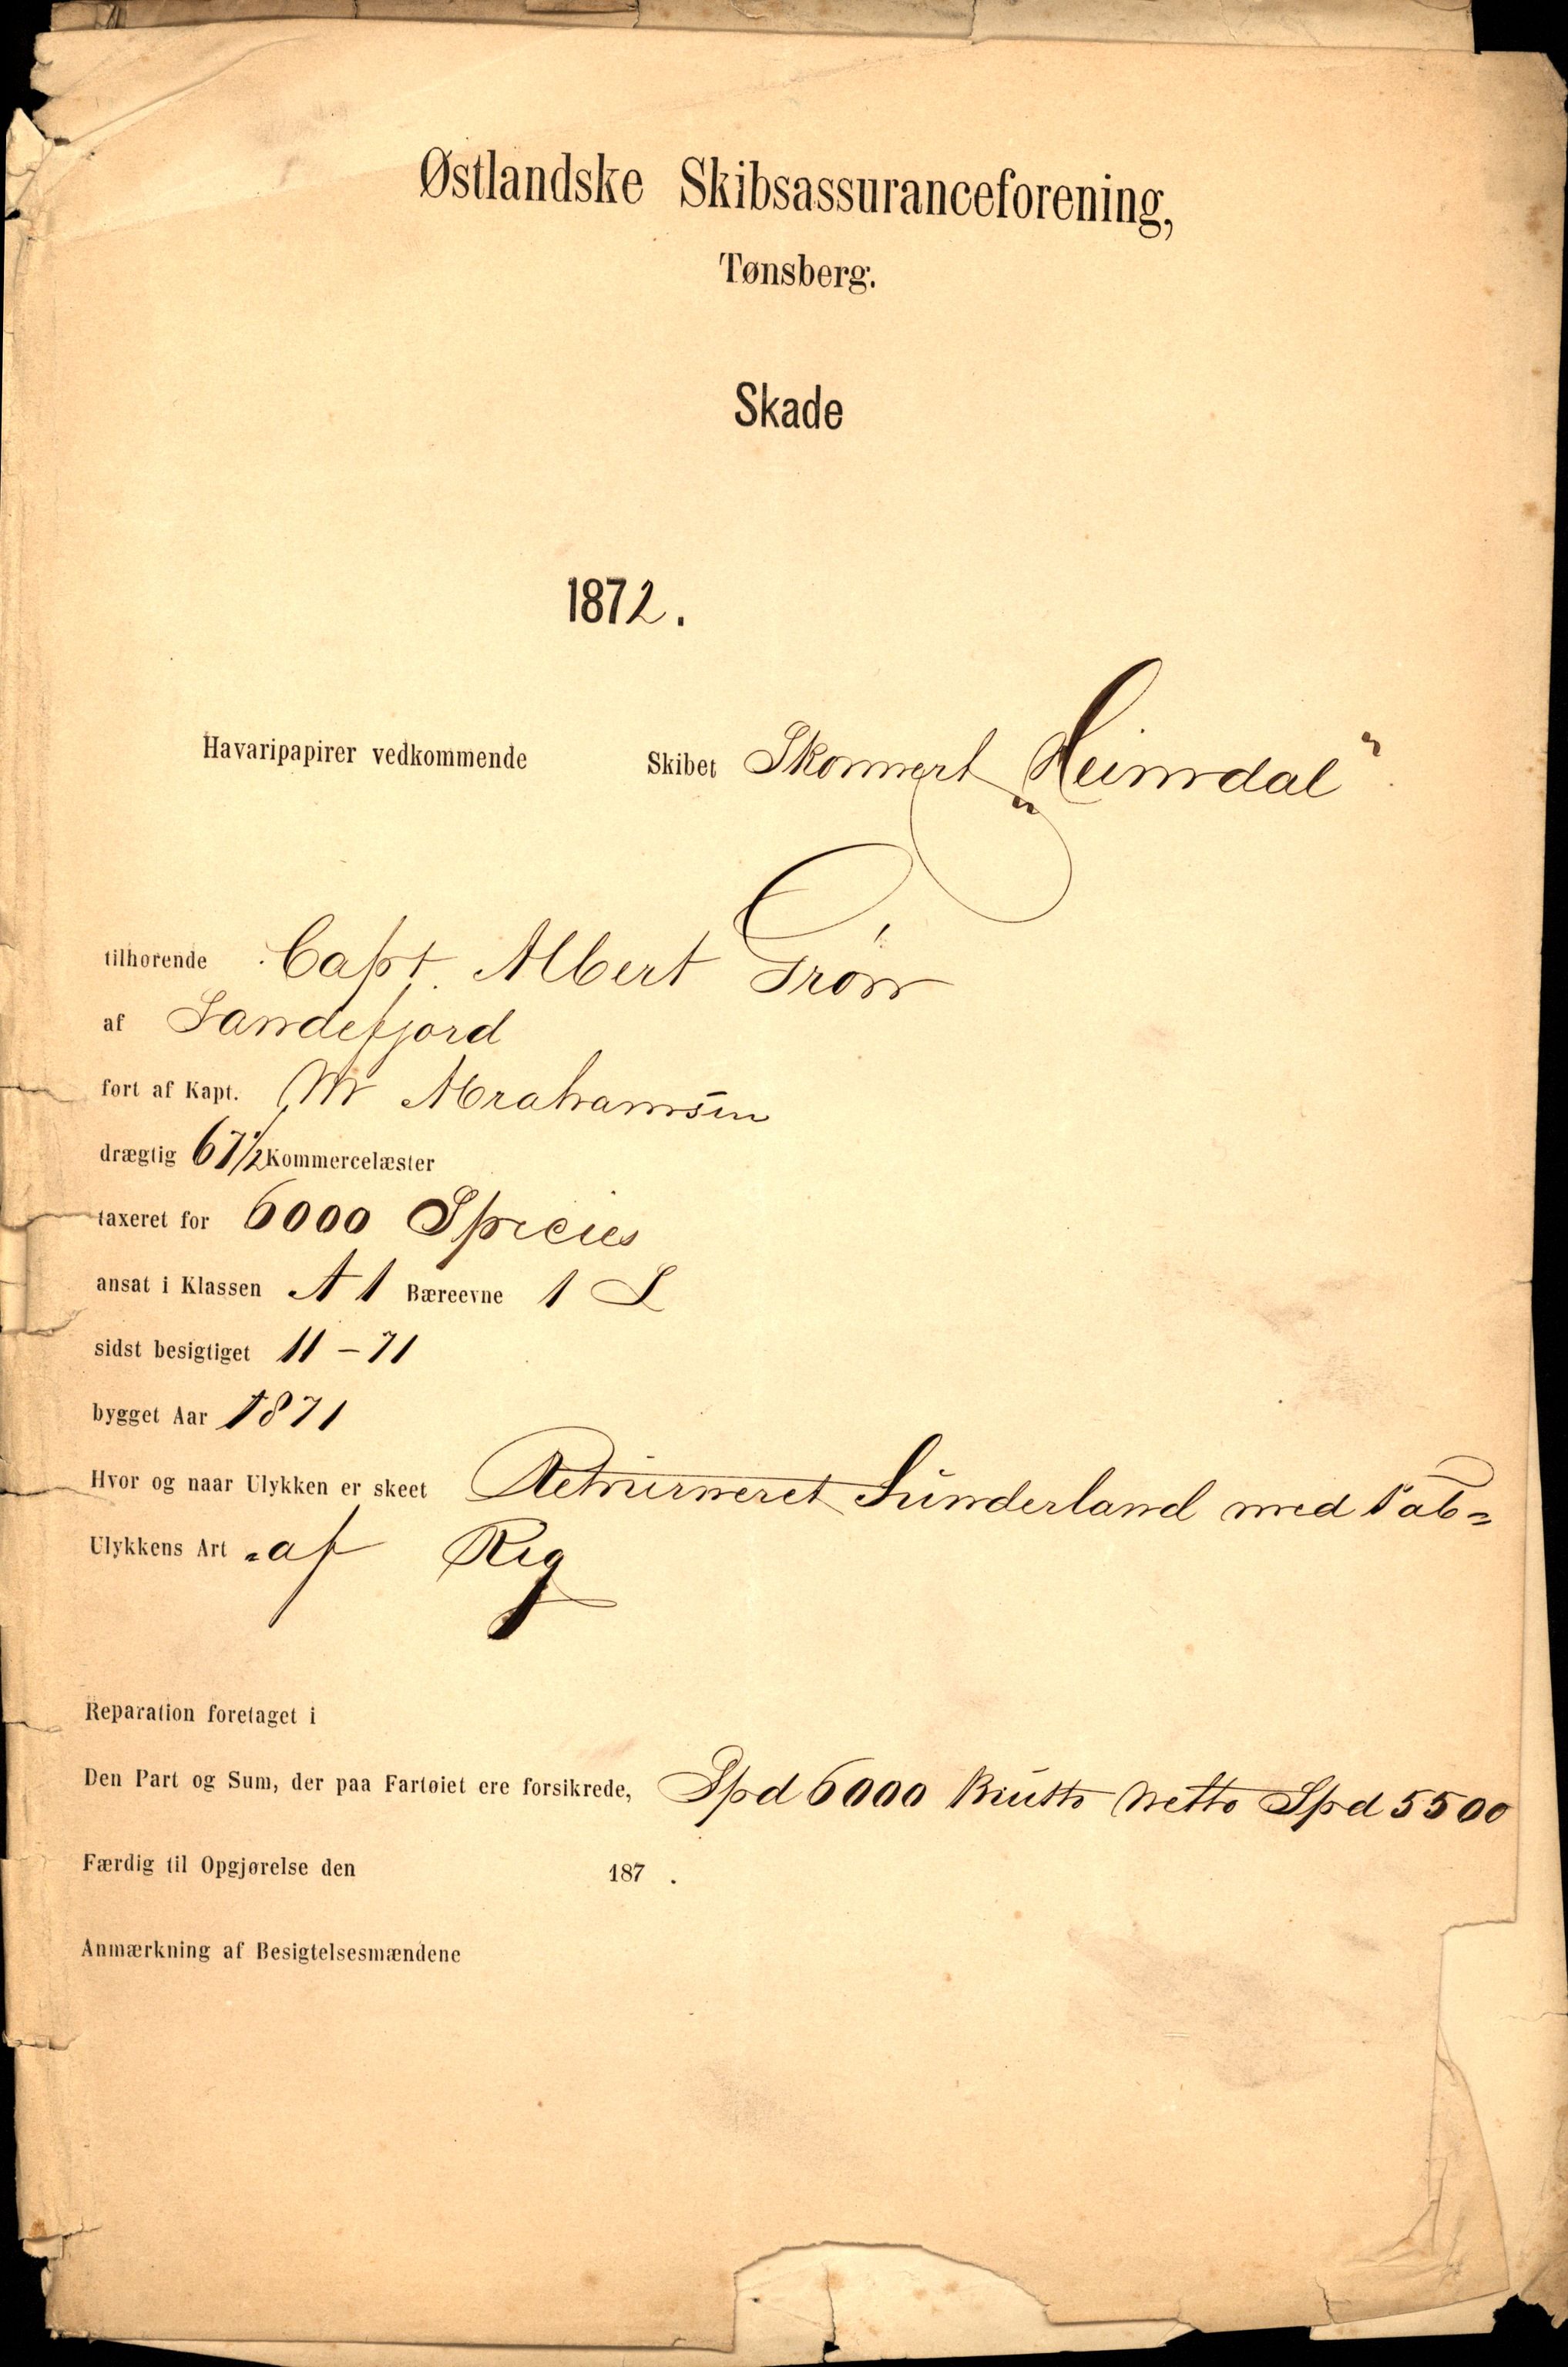 Østlandske Skibsassuranceforening,
Tønsberg.
Skade
1872.
Havaripapirer vedkommende Skibet Skonnert „Heimdal"
tilhørende Capt. Albert Grøn
af Sandefjord
ført af Kapt. M Abrahamsen
drægtig 67 1/2 Kommercelæster
taxeret for 6000 Species
ansat i Klassen A 1 Bæreevne 1 S
sidst besigtiget 11-71
bygget Aar 1871
Hvor og naar Ulykken er skeet Returneret Sunderland med Tab=
Ulykkens Art =af Rig
Reparation foretaget i
Den Part og Sum, der paa Fartøiet ere forsikrede, Spd 6000 Brutto Netto Spd 5500
Færdig til Opgjørelse den 187 .
Anmærkning af Besigtelsesmændene